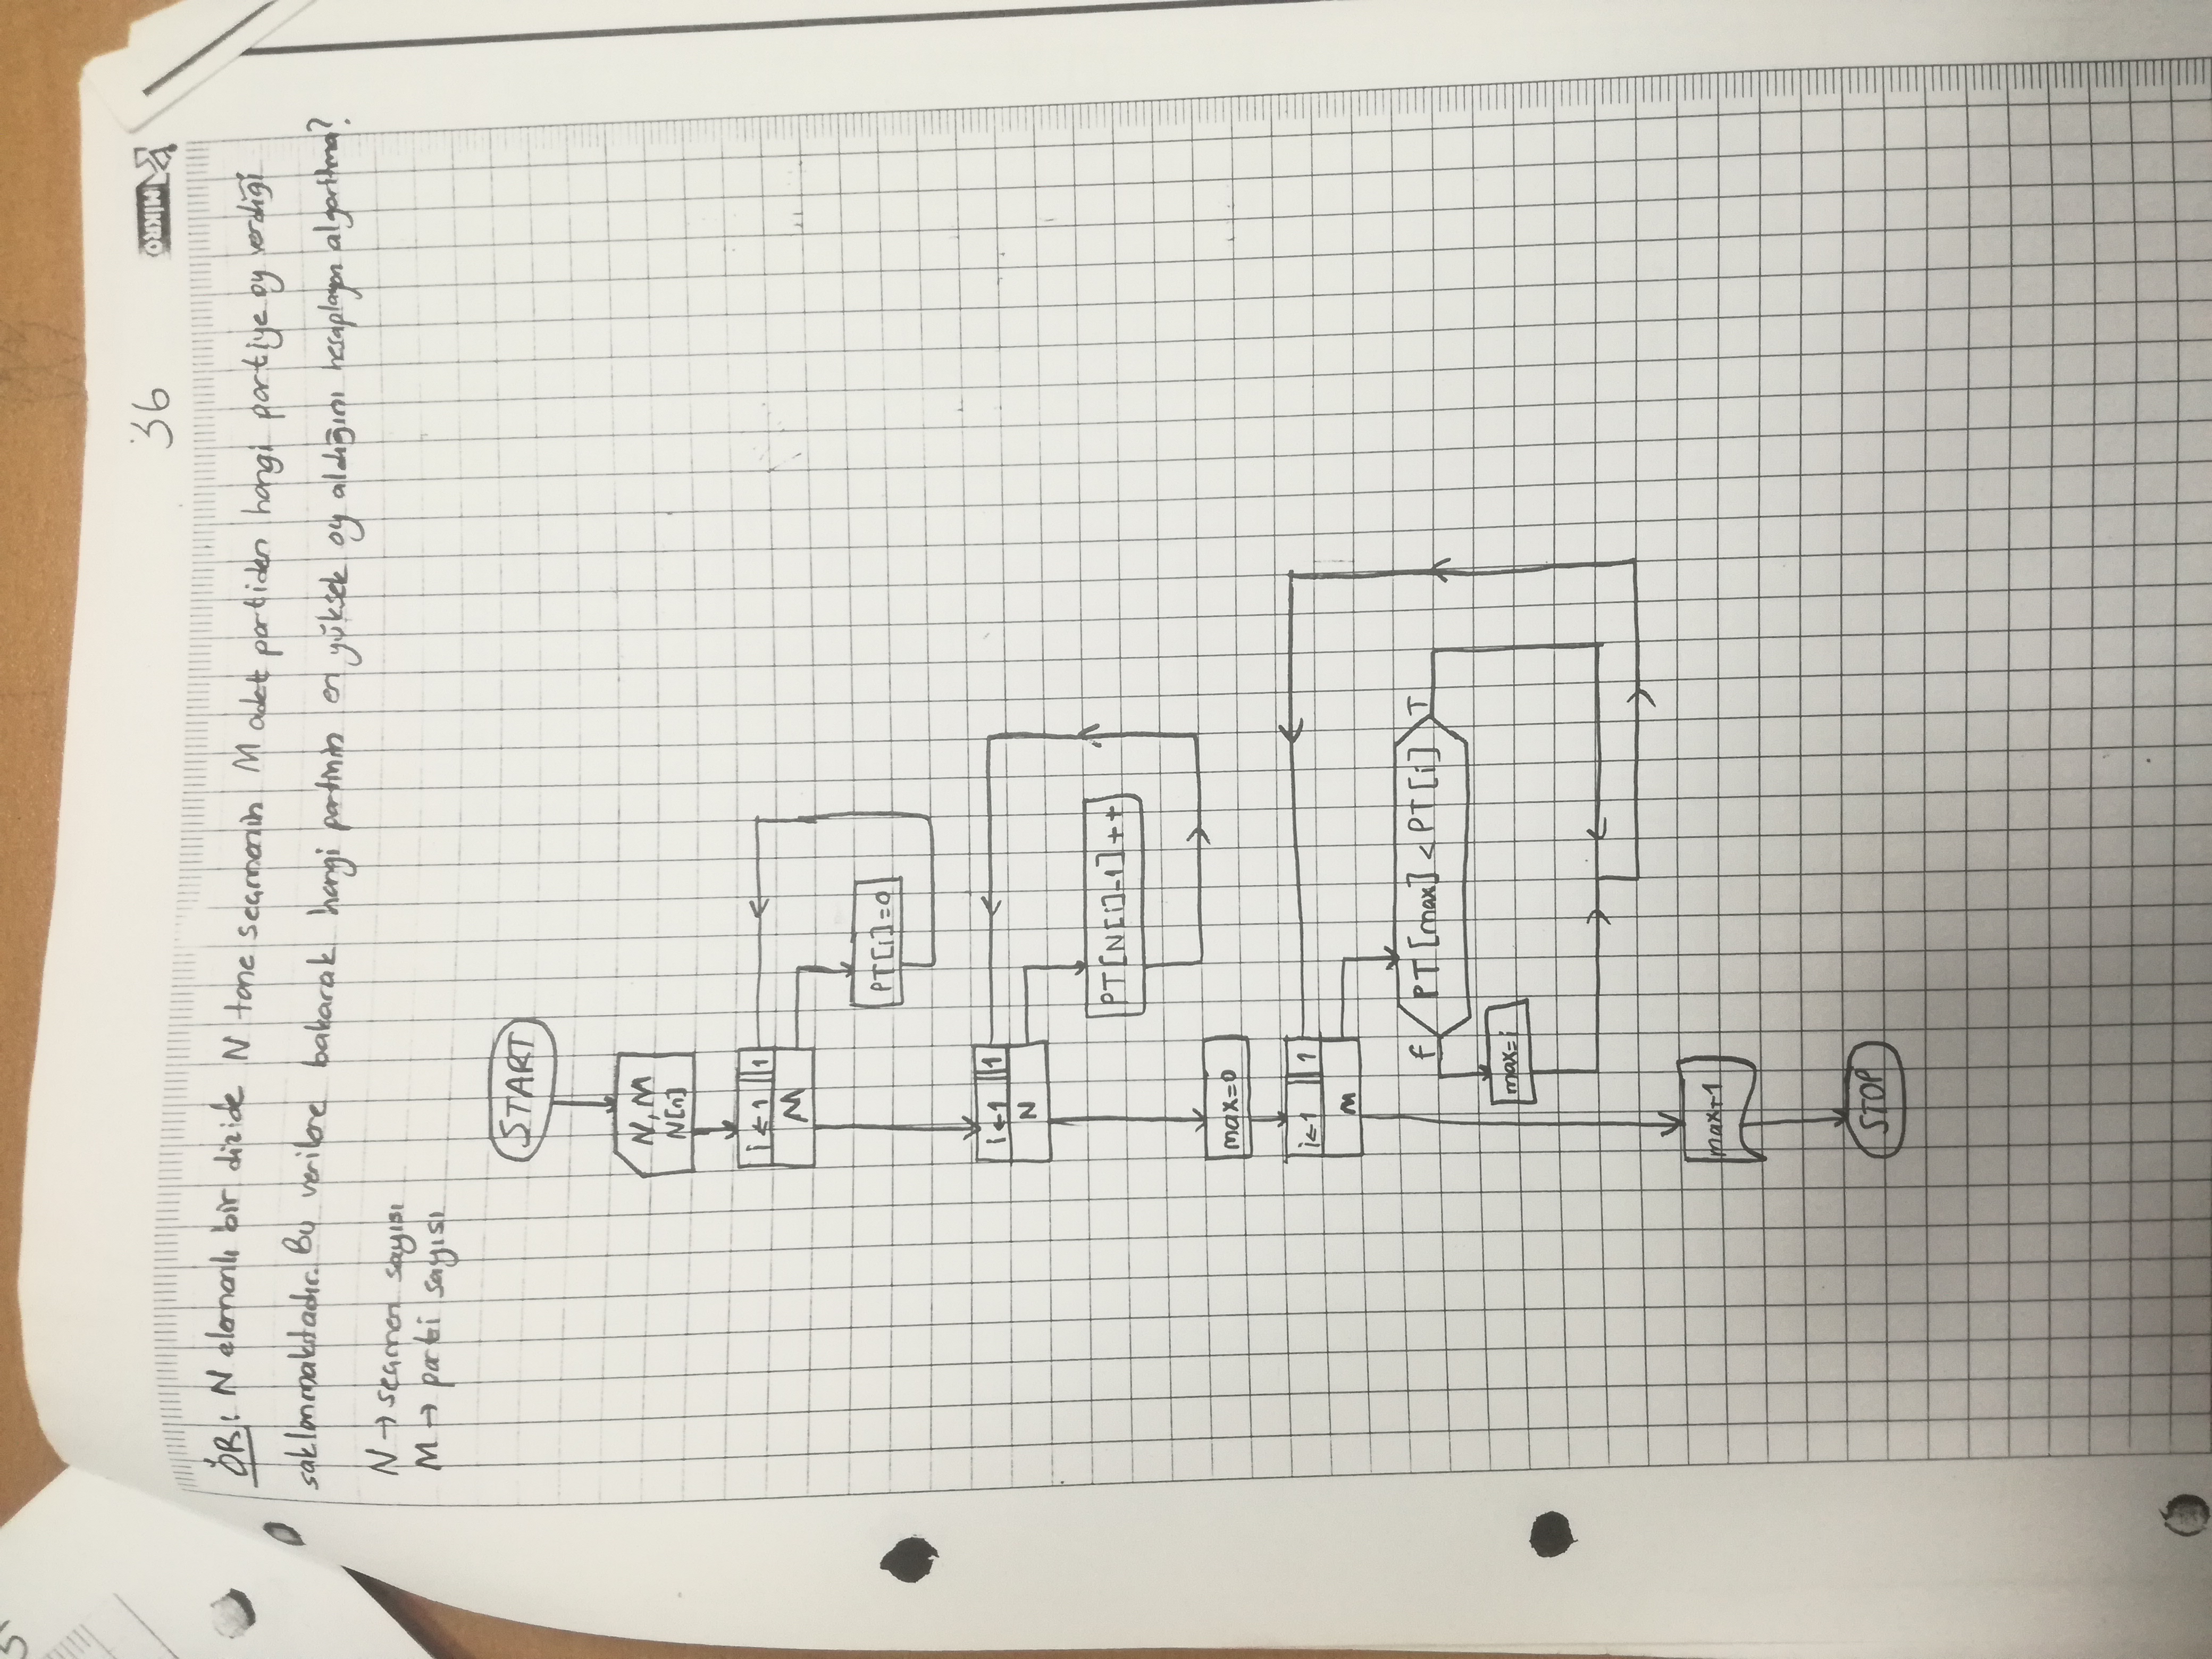 5
36
MİKRO
ÖR: N elemanlı bir dizide N tane seçmenin M adet partiden hangi partiye oy verdiği
saklanmaktadır. Bu verilere bakarak hangi partinin en yüksek oy aldığını hesaplayan algoritma?
N → seçmen sayısı
M → parti sayısı
START
N, M
N[n]
i ← 1 1
M
PT[i]=0
i ← 1 1
N
PT[N[i]-1]++
max=0
i ← 1 1
M
F PT[max] < PT[i] T
max=i
max+1
STOP